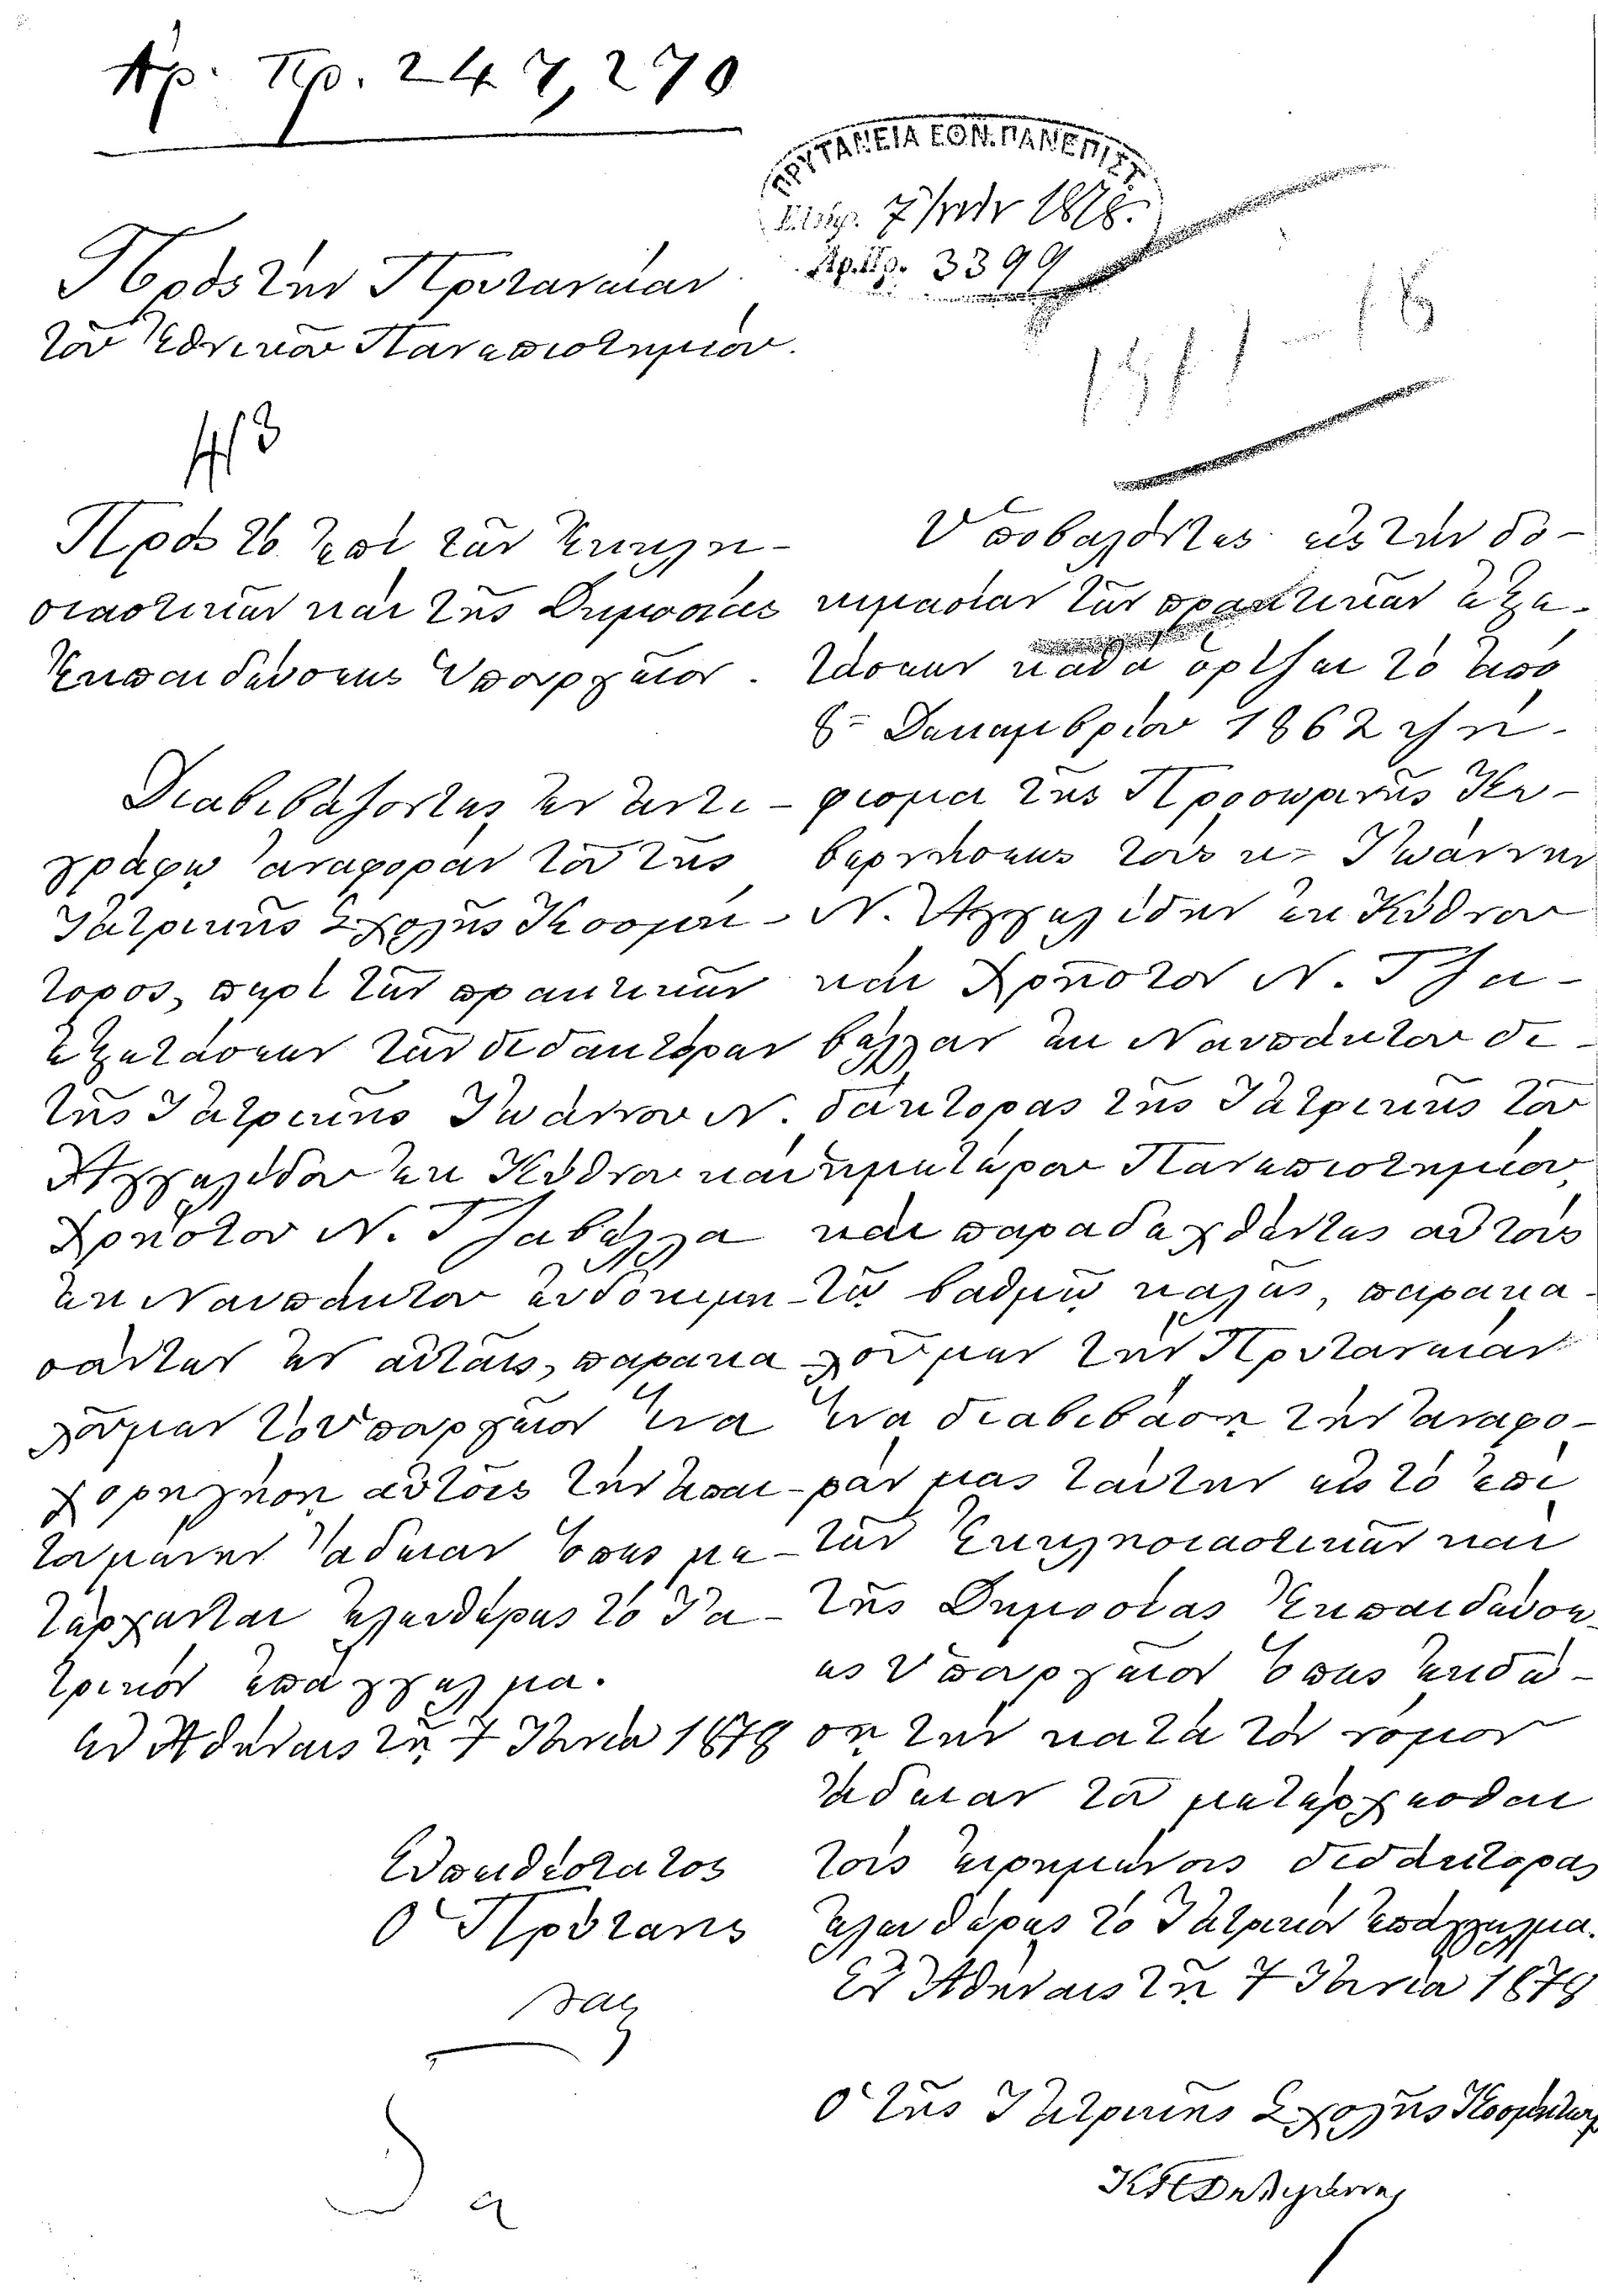 Ἀρ. Πρ. 247,270
ΠΡΥΤΑΝΕΙΑ ΕΘΝ. ΠΑΝΕΠΙΣΤ.
7 1878.
Ἀρ. Πρ. 3399
Πρὸς τὴν Πρυτανείαν
τοῦ Ἐθνικοῦ Πανεπιστημίου.
Πρὸς τὸ ἐπὶ τῶν Ἐκκλη-
σιαστικῶν καὶ τῆς Δημοσίας
Ἐκπαιδεύσεως Ὑπουργεῖον.
Διαβιβάζοντες ἐν ἀντι-
γράφῳ ἀναφορὰν τοῦ τῆς
Ἰατρικῆς Σχολῆς Κοσμή-
τορος, περὶ τῶν πρακτικῶν
ἐξετάσεων τῶν διδακτόρων
τῆς Ἰατρικῆς Ἰωάννου Ν.
Ἀγγελίδου ἐκ Κύθνου καὶ
Χρήστου Ν. Τζαβέλλα
ἐκ Ναυπάκτου εὐδοκιμη-
σάντων ἐν αὐταῖς, παρακα-
λοῦμεν τὸ Ὑπουργεῖον ἵνα
χορηγήσῃ αὐτοῖς τὴν ἀπαι-
τουμένην ἄδειαν ὅπως με-
τέρχωνται ἐλευθέρως τὸ Ἰα-
τρικὸν ἐπάγγελμα.
Ἐν Ἀθήναις τῇ 7 Ἰουνίου 1878
Εὐπειθέστατος
Ὁ Πρύτανις
Ὑποβαλόντες εἰς τὴν δο-
κιμασίαν τῶν πρακτικῶν ἐξε-
τάσεων καθὰ ὁρίζει τὸ ἀπὸ
8 Δεκεμβρίου 1862 ψή-
φισμα τῆς Προσωρινῆς Κυ-
βερνήσεως τοὺς κ= Ἰωάννην
Ν. Ἀγγελίδην ἐκ Κύθνου
καὶ Χρῆστον Ν. Τζα-
βέλλαν ἐκ Ναυπάκτου δι-
δάκτορας τῆς Ἰατρικῆς τοῦ
ἡμετέρου Πανεπιστημίου,
καὶ παραδεχθέντες αὐτοὺς
τῷ βαθμῷ καλῶς, παρακα-
λοῦμεν τὴν Πρυτανείαν
ἵνα διαβιβάσῃ τὴν ἀναφο-
ράν μας ταύτην εἰς τὸ ἐπὶ
τῶν Ἐκκλησιαστικῶν καὶ
τῆς Δημοσίας Ἐκπαιδεύσε-
ως Ὑπουργεῖον ὅπως ἐκδώ-
σῃ τὴν κατὰ τὸν νόμον
ἄδειαν τοῦ μετέρχεσθαι
τοὺς εἰρημένους διδάκτορας
ἐλευθέρως τὸ Ἰατρικὸν ἐπάγγελμα.
Ἐν Ἀθήναις τῇ 7 Ἰουνίου 1878
Ὁ τῆς Ἰατρικῆς Σχολῆς Κοσμήτωρ